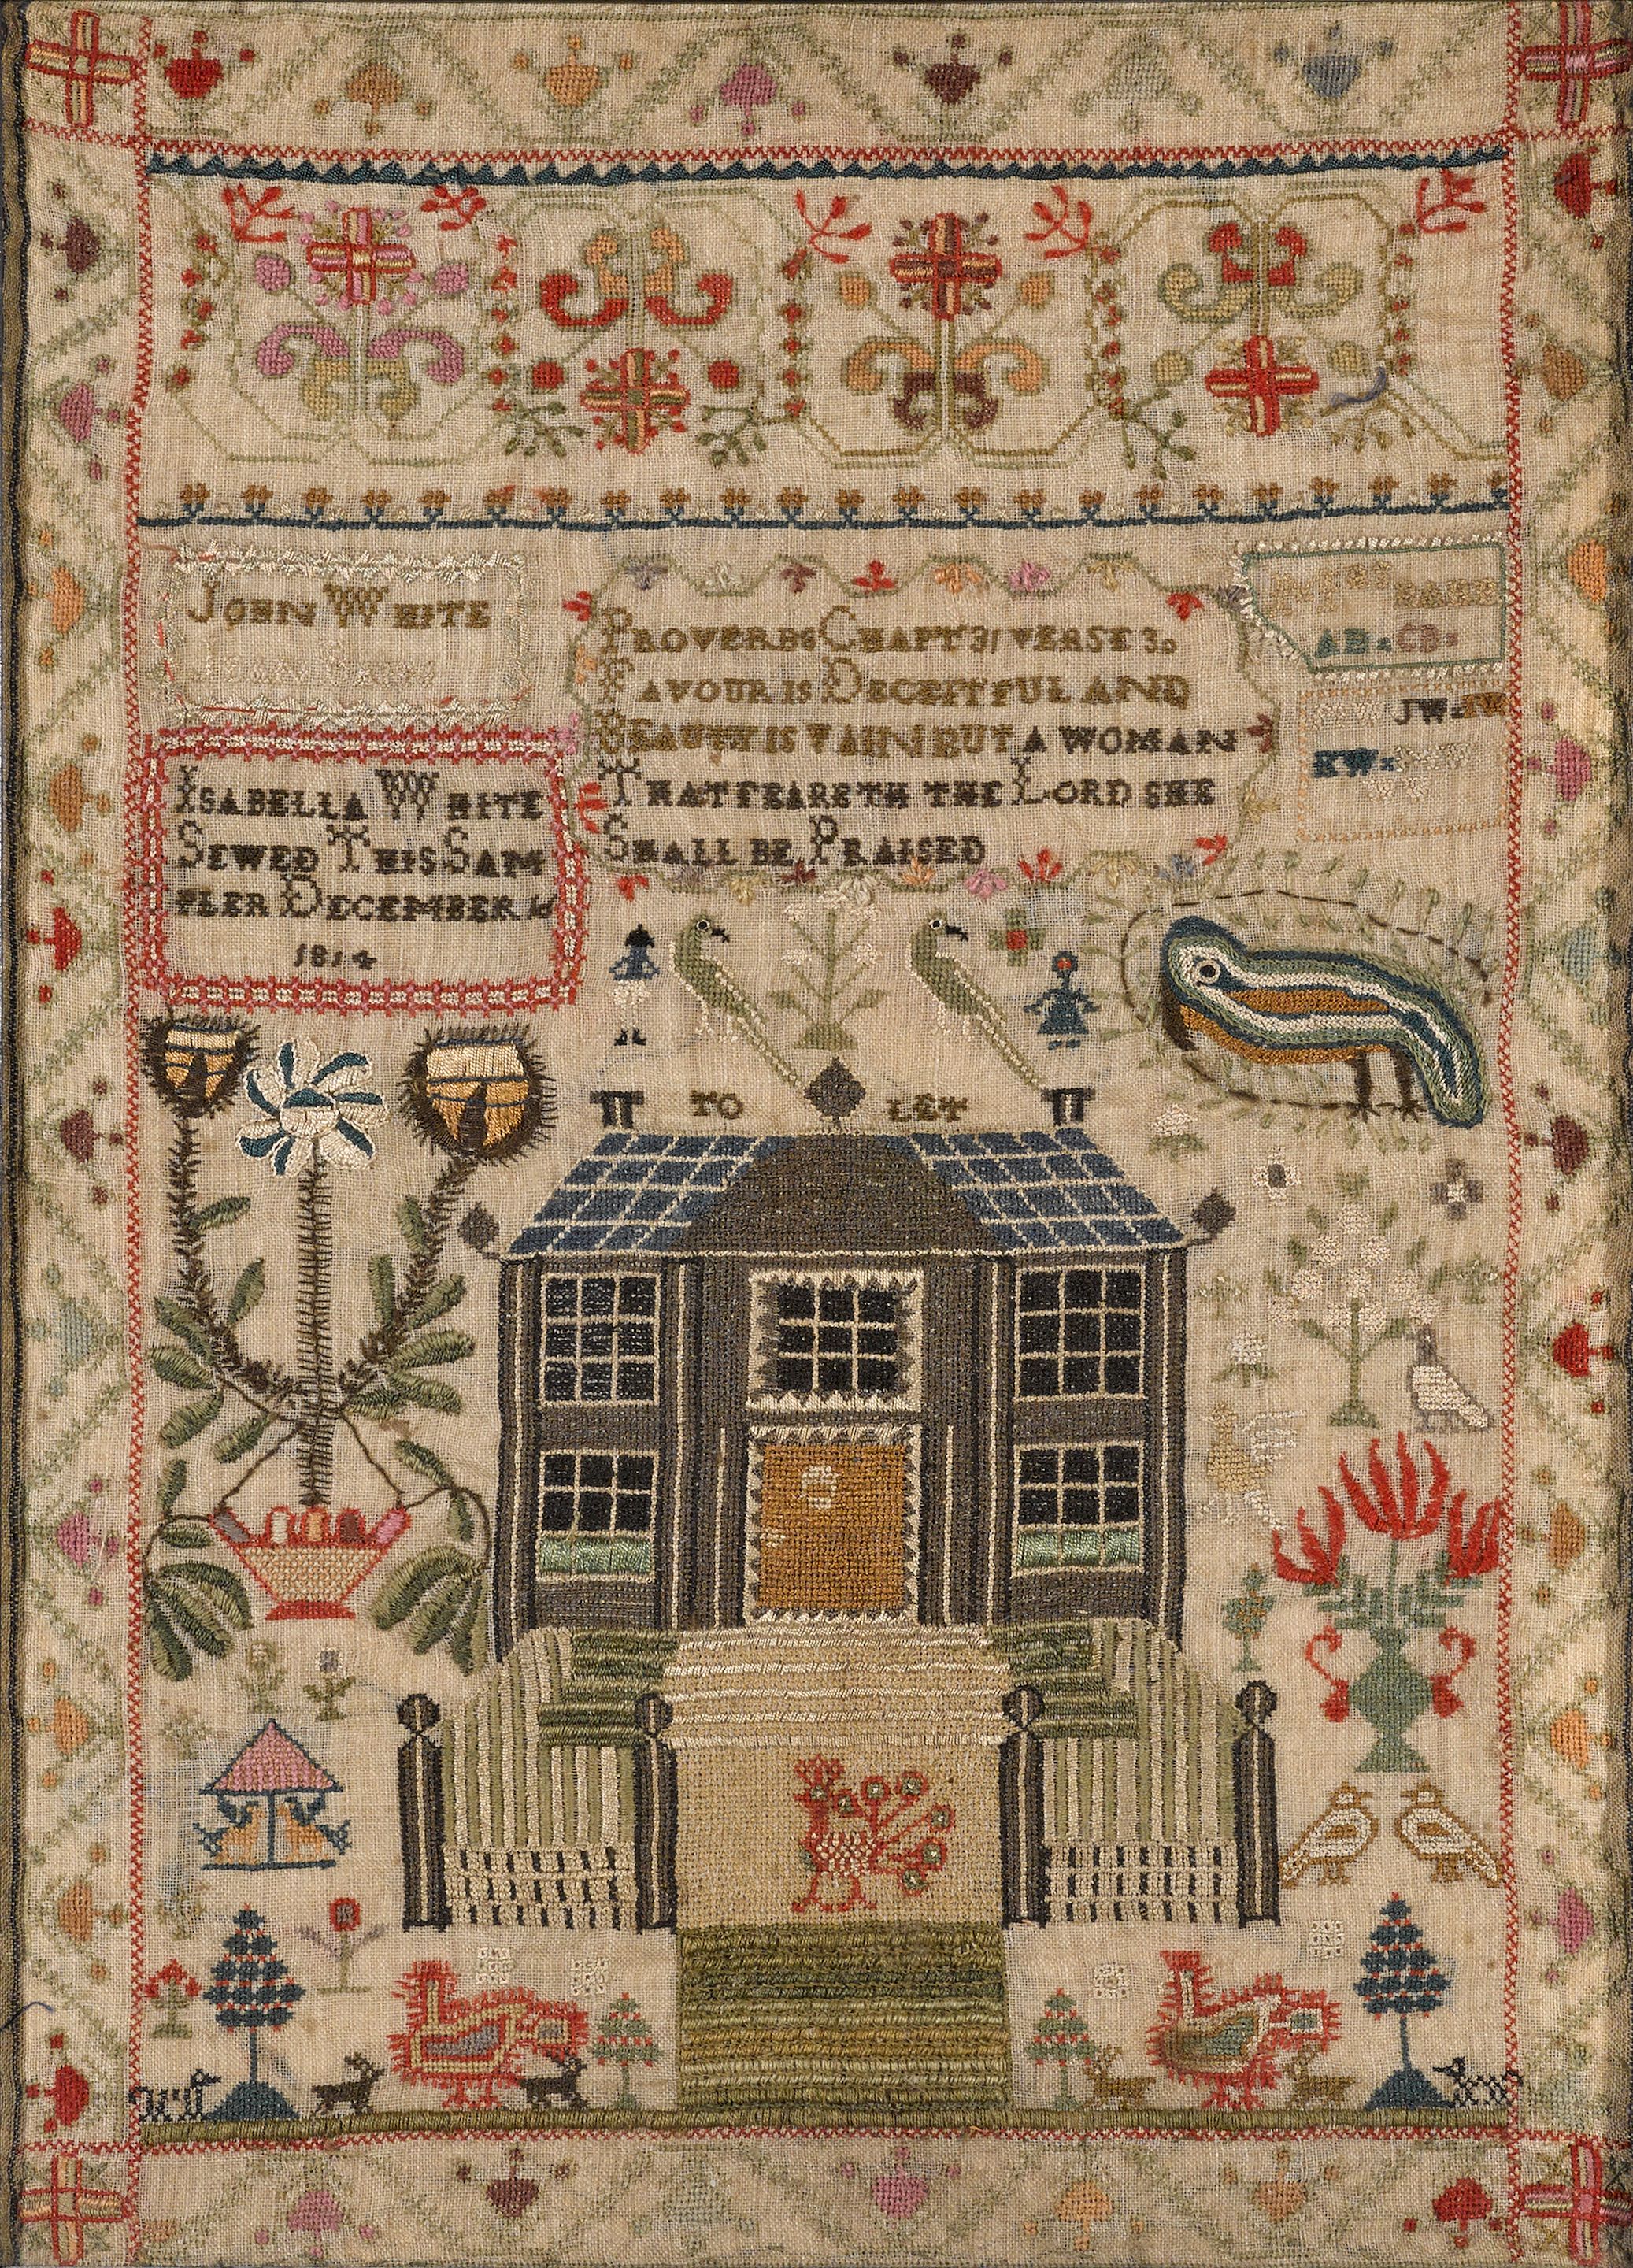 JOHN WHITE
PROVERBS CHAPT 31 VERSE 30
FAVOUR IS DECEITFUL AND
BEAUTY IS VAIN BUT A WOMAN
THAT FEARETH THE LORD SHE
SHALL BE PRAISED
AB CB
JW IW
KW
ISABELLA WHITE
SEWED THIS SAM
PLER DECEMBER 16
1814
TO LET